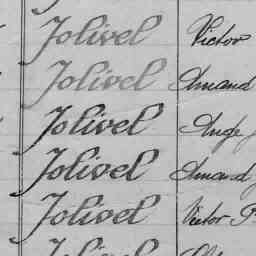 Jolivel Victor
Jolivel Amand
Jolivel Ange
Jolivel Amand
Jolivel Victor P
Jolivel